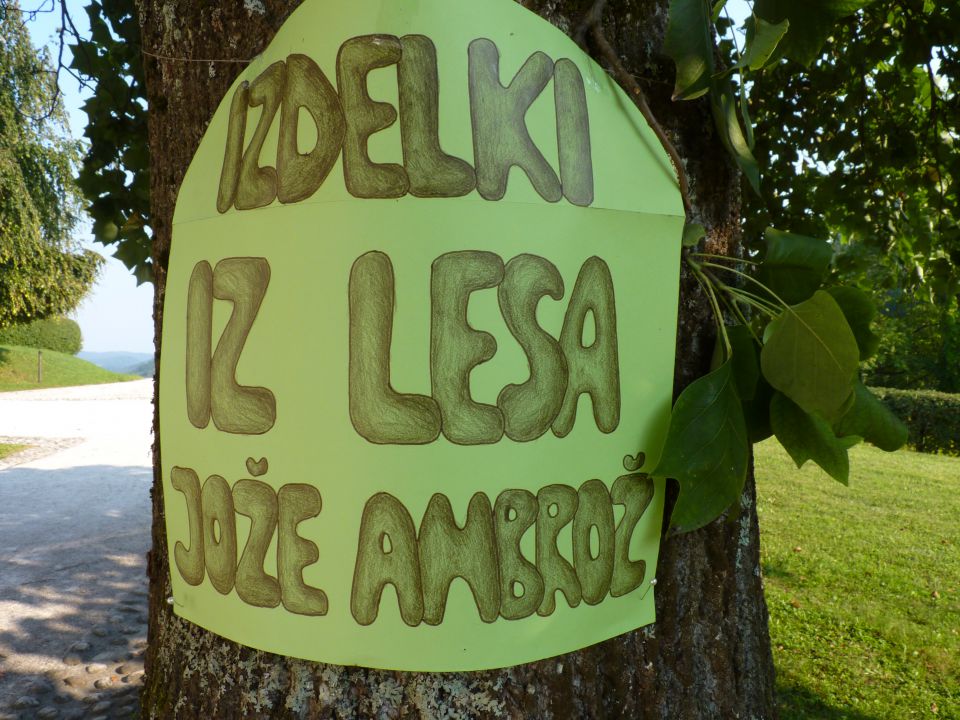 IZDELKI
IZ LESA
JOŽE AMBROŽ